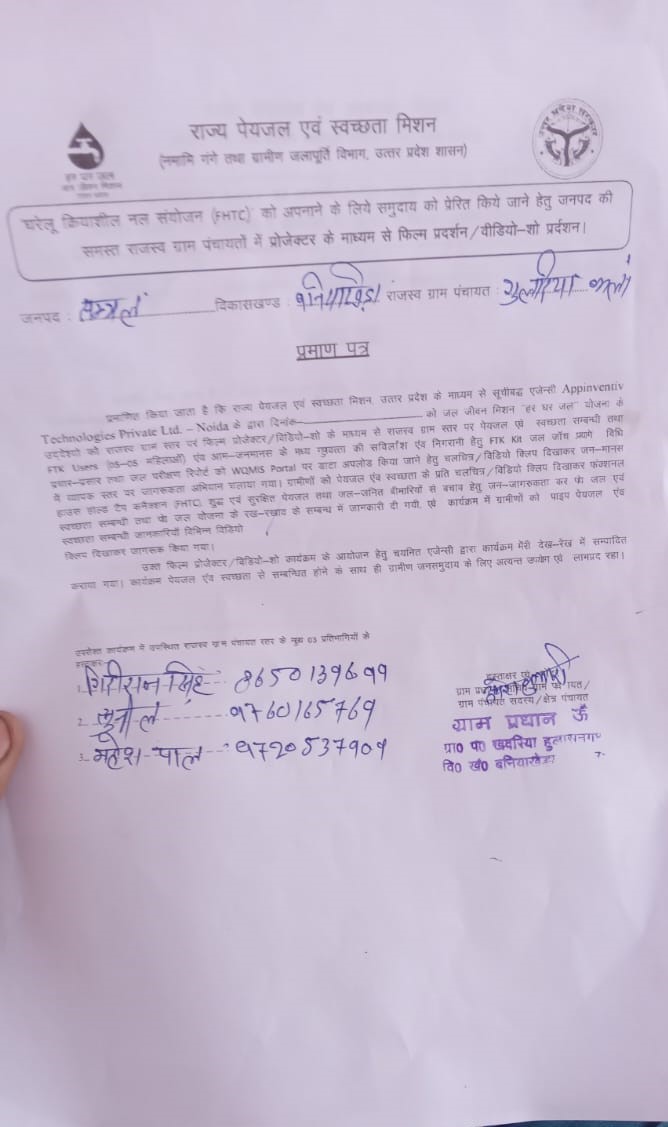 राज्य पेयजल एवं स्वच्छता मिशन
(नमामि गंगे तथा ग्रामीण जलापूर्ति विभाग, उत्तर प्रदेश शासन)
हर घर जल
जल जीवन मिशन
उत्तर प्रदेश सरकार
घरेलू क्रियाशील नल संयोजन (FHTC) को अपनाने के लिये समुदाय को प्रेरित किये जाने हेतु जनपद की
समस्त राजस्व ग्राम पंचायतों में प्रोजेक्टर के माध्यम से फिल्म प्रदर्शन/वीडियो-शो प्रर्दशन।
जनपद : सम्भल विकासखण्ड : बनियाखेड़ा राजस्व ग्राम पंचायत :
प्रमाण पत्र
प्रमाणित किया जाता है कि राज्य पेयजल एवं स्वच्छता मिशन, उत्तर प्रदेश के माध्यम से सूचीबद्ध एजेन्सी Appinventiv
Technologies Private Ltd. – Noida के द्वारा दिनांक को जल जीवन मिशन "हर घर जल" योजना के
उद्देश्यो को राजस्व ग्राम स्तर पर फिल्म प्रोजेक्टर/विडियो-शो के माध्यम से राजस्व ग्राम स्तर पर पेयजल एवं स्वच्छता सम्बन्धी तथा
FTK Users (05-05 महिलाओं) एंव आम-जनमानस के मध्य गुणवत्ता की सर्विलांश एंव निगरानी हेतु FTK Kit जल जाँच प्रयोग विधि
प्रचार-प्रसार तथा जल परीक्षण रिपोर्ट को WQMIS Portal पर डाटा अपलोड किया जाने हेतु चलचित्र/विडियो क्लिप दिखाकर जन-मानस
में व्यापक स्तर पर जागरूकता अभियान चलाया गया। ग्रामीणों को पेयजल एंव स्वच्छता के प्रति चलचित्र/विडियो क्लिप दिखाकर फंक्शनल
हाउस होल्ड टैप कनेक्शन (FHTC), शुद्ध एवं सुरक्षित पेयजल तथा जल-जनित बीमारियों से बचाव हेतु जन-जागरूकता कर जल एवं
स्वच्छता सम्बन्धी तथा जल योजना के रख-रखाव के सम्बन्ध में जानकारी दी गयी, एवं कार्यक्रम में ग्रामीणों को पाइप पेयजल एंव
स्वच्छता सम्बन्धी जानकारियाँ विभिन्न विडियो
क्लिप दिखाकर जागरूक किया गया।
उक्त फिल्म प्रोजेक्टर/विडियो-शो कार्यक्रम के आयोजन हेतु चयनित एजेन्सी द्वारा कार्यक्रम मेरी देख-रेख में सम्पादित
कराया गया। कार्यक्रम पेयजल एंव स्वच्छता से सम्बन्धित होने के साथ ही ग्रामीण जनसमुदाय के लिए अत्यन्त उपयोग एवं लाभप्रद रहा।
उपरोक्त कार्यक्रम में उपस्थित राजस्व ग्राम पंचायत स्तर के मुख्य 03 प्रतिभागियों के
हस्ताक्षर-
1. सिंह 8650139699
2. सुनील 9760165769
3. महेश पाल 9720537909
ग्राम पंचायत सदस्य/क्षेत्र पंचायत
ग्राम प्रधान
ग्रा० पं० खवरिया हुलासनगर
वि० खं० बनियाखेड़ा